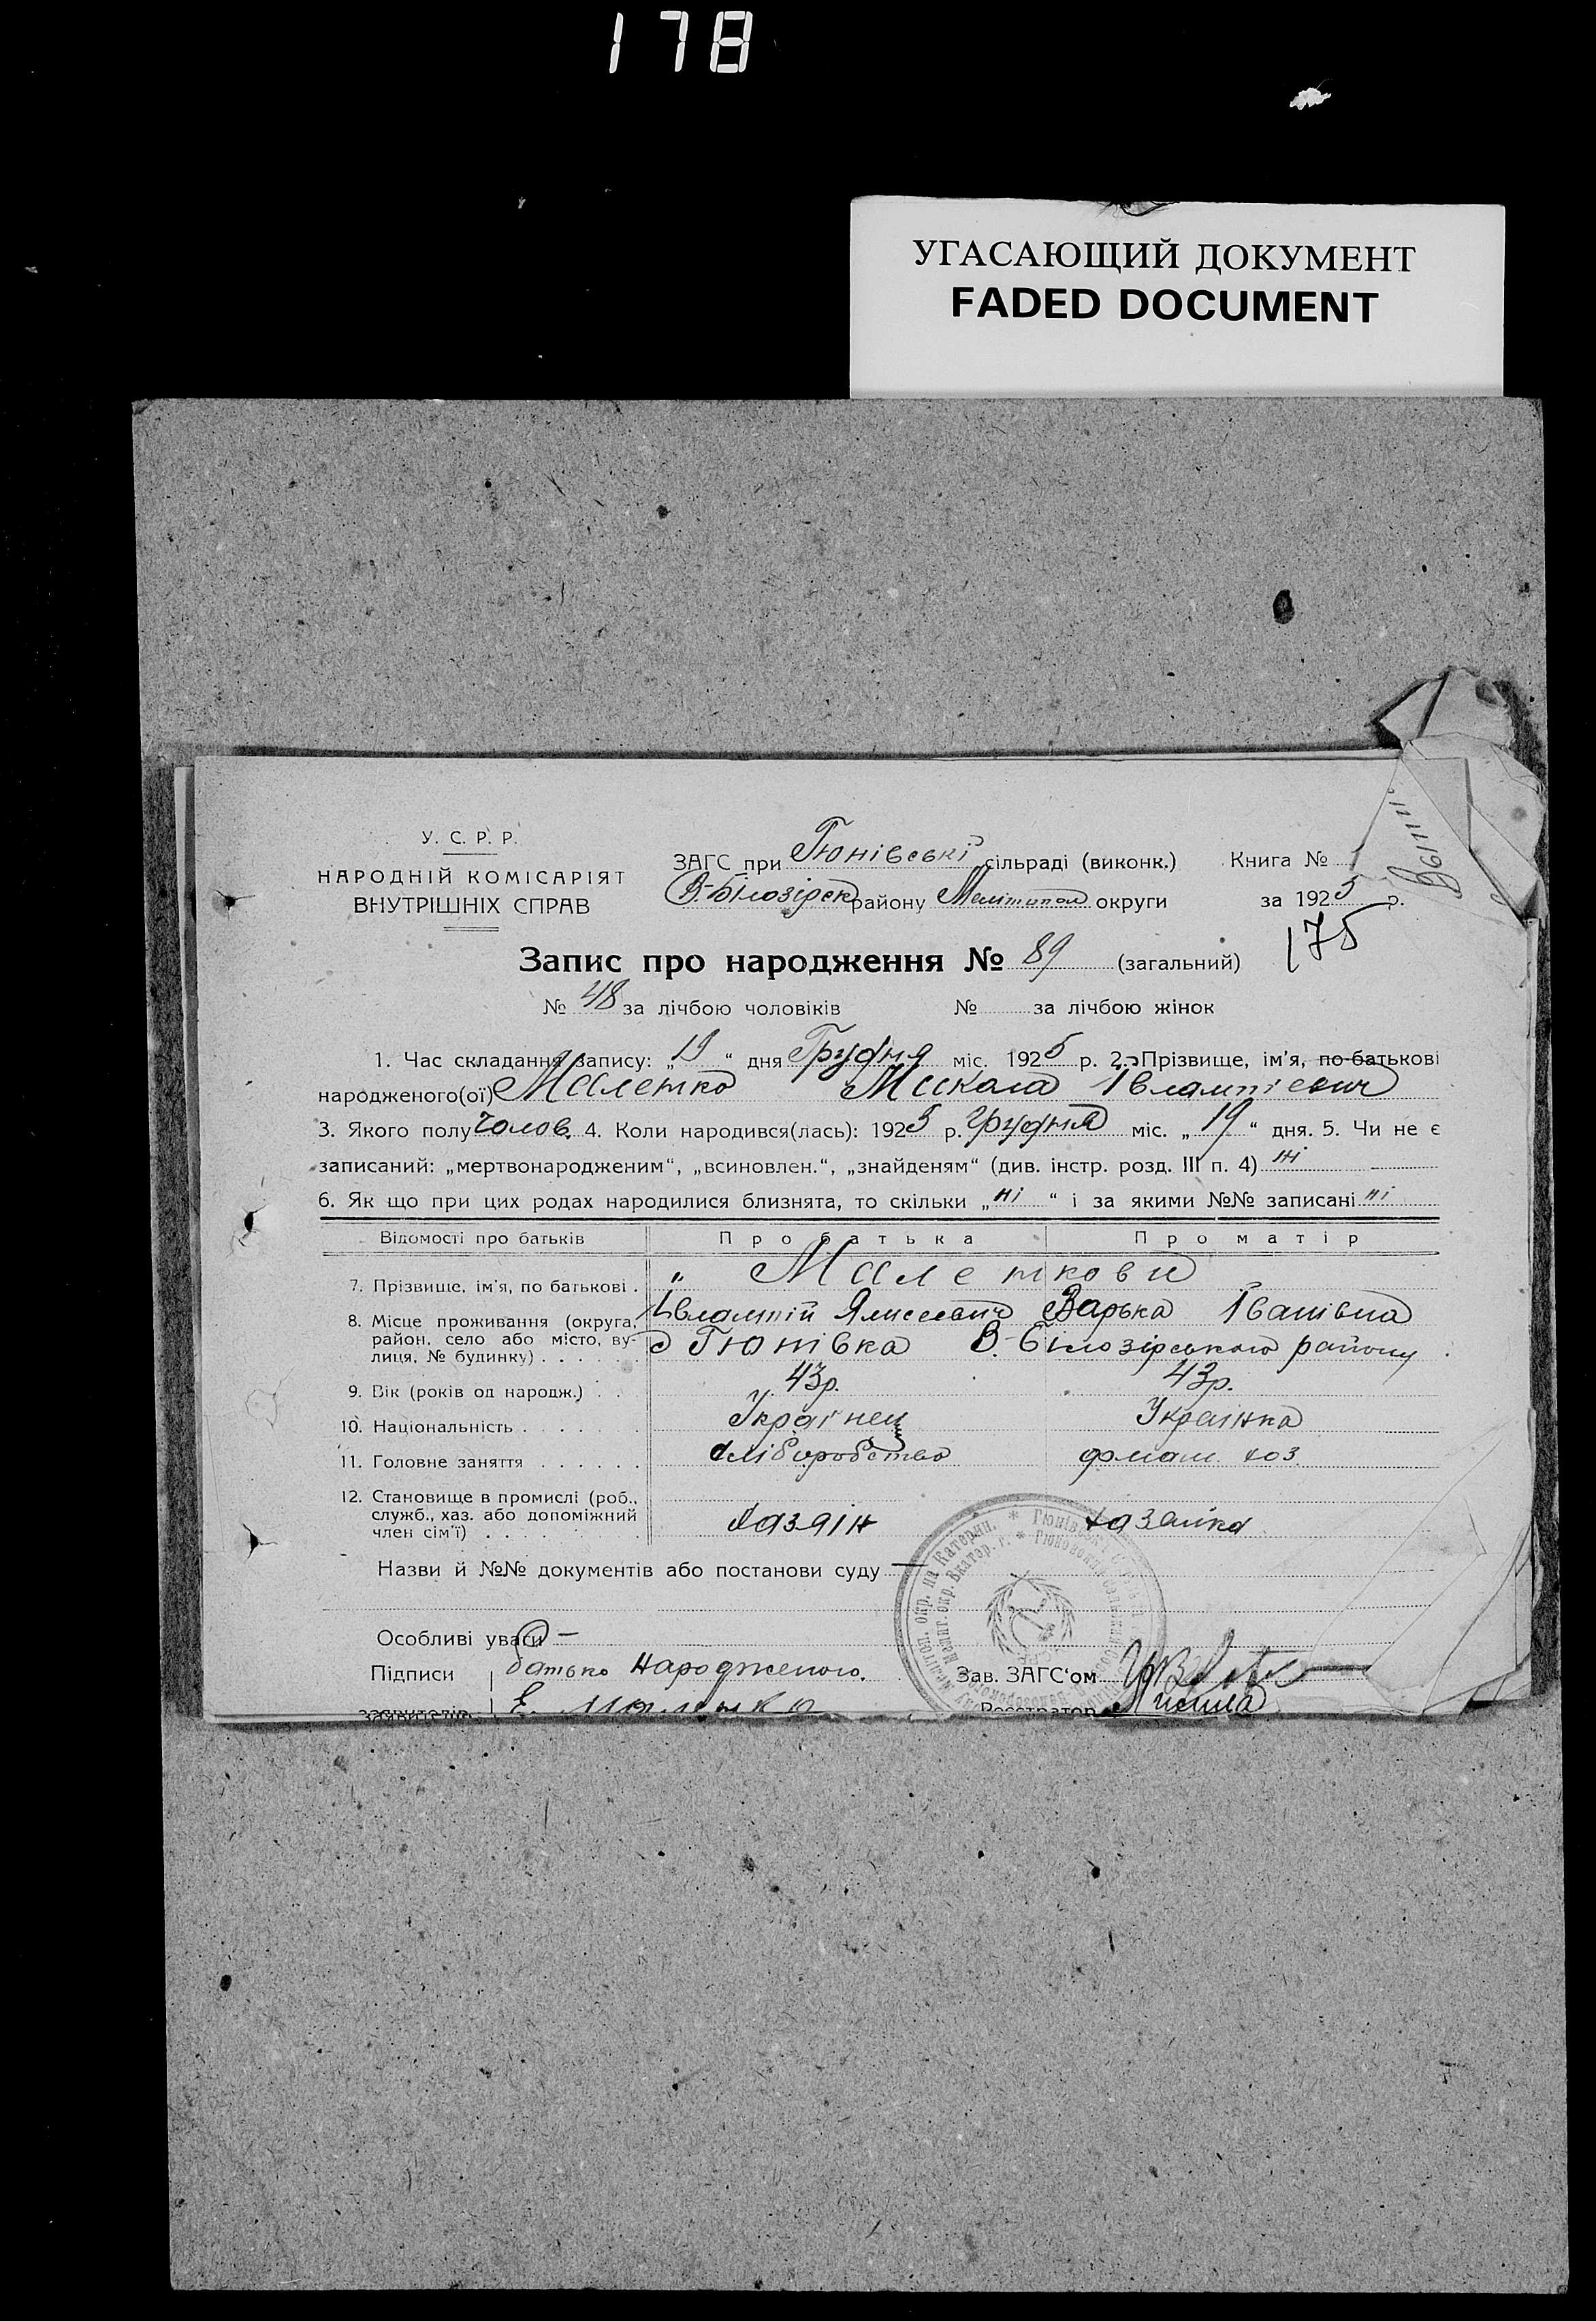 178
УГАСАЮЩИЙ ДОКУМЕНТ
FADED DOCUMENT
У. С. Р. Р.
НАРОДНІЙ КОМІСАРІЯТ
ВНУТРІШНІХ СПРАВ
ЗАГС при Гюнівські сільраді (виконк.)
В-Білозірск району Мелітипол округи
Книга № 1
за 1925 р.
175
Запис про народження № 89 (загальний)
№ 48 за лічбою чоловіків № за лічбою жінок
1. Час складання запису: „19“ дня Грудня міс. 1925 р. 2. Прізвище, ім'я, по-батькові
народженого(ої) Малетко Микола Івлампіевич
3. Якого полу чолов. 4. Коли народився(лась): 1925 р. Грудня міс. „19“ дня. 5. Чи не є
записаний: „мертвонародженим“, „всиновлен.“, „знайденям“ (див. інстр. розд. III п. 4) ні
6. Як що при цих родах народилися близнята, то скільки „ні“ і за якими №№ записані ні
Відомості про батьків Про батька Про матір
7. Прізвище, ім'я, по батькові . „ Малеткови
Івлампій Варька Іванівна
8. Місце проживання (округа, район, село або місто, вулиця, № будинку) . . . . . Гюнівка В-Білозірського району
9. Вік (років од народж.) . . 43р. 43р.
10. Національність . . . . . Украінец Украінка
11. Головне заняття . . . . . . хліборобство домаш. хоз.
12. Становище в промислі (роб., служб., хаз. або допоміжний член сім'ї) . . . . . . хазаін хазаика
Назви й №№ документів або постанови суду —
Особливі уваги —
Підписи батько народженого.
заявителів Е. Малетко
Зав. ЗАГС'ом
Реєстратор